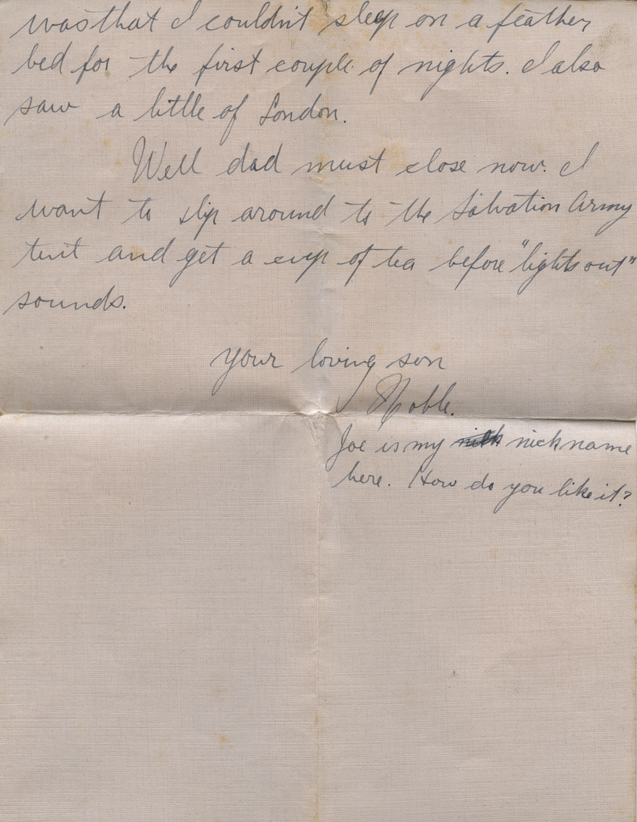 was that I couldn't sleep on a feather
bed for the first couple of nights. I also
saw a little of London.
Well dad must close now. I
want to slip around to the Salvation Army
tent and get a cup of tea before "lights out"
sounds.
Your loving son
Noble.
Joe is my nick nickname
here. How do you like it?